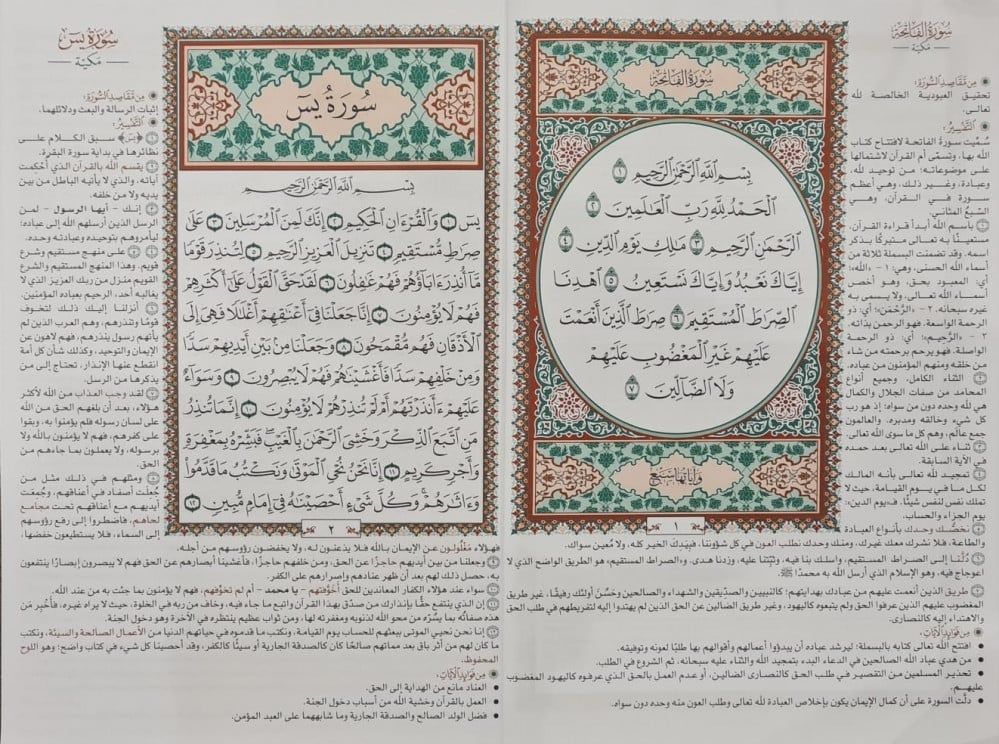 سُورَةُ الفَاتِحَةِ
مَكيّة
مِن مَّقَاصِدِ السُّورَةِ:
تحقيق العبودية الخالصة لله
تعالى.
التَّفْسِيرُ:
سُمِّيت سورة الفاتحة لافتتاح كتاب
الله بها، وتسمى أم القرآن لاشتمالها
على موضوعاته؛ من توحيد لله،
وعبادة، وغير ذلك، وهي أعظم
سورة في القرآن، وهي
السَّبعُ المثاني.
١ باسم الله أبدأ قراءة القرآن،
مستعينًا به تعالى متبركًا بذكر
اسمه. وقد تضمنت البسملة ثلاثة من
أسماء الله الحسنى، وهي: ١ - «الله»؛
أي: المعبود بحق، وهو أخص
أسماء الله تعالى، ولا يسمى به
غيره سبحانه. ٢ - «الرَّحْمَن»؛ أي: ذو
الرحمة الواسعة. فهو الرحمن بذاته.
٣ - «الرَّحِيم»؛ أي: ذو الرحمة
الواصلة. فهو يرحم برحمته من شاء
من خلقه ومنهم المؤمنون من عباده.
٢ الثناء الكامل، وجميع أنواع
المحامد من صفات الجلال والكمال
هي لله وحده دون من سواه؛ إذ هو رب
كل شيء وخالقه ومدبره. والعالمون
جمع عالم، وهم كل ما سوى الله تعالى.
٣ ثناء على الله تعالى بعد حمده
في الآية السابقة.
٤ تمجيد لله تعالى بأنه المالك
لكل ما في يوم القيامة، حيث لا
تملك نفس لنفس شيئًا. فـيوم الدين:
يوم الجزاء والحساب.
٥ نخصُّك وحدك بأنواع العبادة
والطاعة، فلا نشرك معك غيرك، ومنك وحدك نطلب العون في كل شؤوننا، فبيدك الخير كله، ولا مُعين سواك.
٦ دُلَّنا إلى الصراط المستقيم، واسلك بنا فيه، وثبِّتنا عليه، وزدنا هدى. والصراط المستقيم، هو الطريق الواضح الذي لا
اعوجاج فيه، وهو الإسلام الذي أرسل الله به محمدًا ﷺ.
٧ طريق الذين أنعمت عليهم من عبادك بهدايتهم؛ كالنبيين والصِّدِّيقين والشهداء والصالحين وحَسُنَ أولئك رفيقًا، غير طريق
المغضوب عليهم الذين عرفوا الحق ولم يتبعوه كاليهود، وغير طريق الضالين عن الحق الذين لم يهتدوا إليه لتفريطهم في طلب الحق
والاهتداء إليه كالنصارى.
مِن فَوَائِدِ الآيَاتِ:
• افتتح الله تعالى كتابه بالبسملة؛ ليرشد عباده أن يبدؤوا أعمالهم وأقوالهم بها طلبًا لعونه وتوفيقه.
• من هدي عباد الله الصالحين في الدعاء البدء بتمجيد الله والثناء عليه سبحانه، ثم الشروع في الطلب.
• تحذير المسلمين من التقصير في طلب الحق كالنصارى الضالين، أو عدم العمل بالحق الذي عرفوه كاليهود المغضوب
عليهم.
• دلَّت السورة على أن كمال الإيمان يكون بإخلاص العبادة لله تعالى وطلب العون منه وحده دون سواه.
سُورَةُ الفَاتِحَةِ
بِسْمِ ٱللَّهِ ٱلرَّحْمَٰنِ ٱلرَّحِيمِ ١
ٱلْحَمْدُ لِلَّهِ رَبِّ ٱلْعَٰلَمِينَ ٢
ٱلرَّحْمَٰنِ ٱلرَّحِيمِ ٣ مَٰلِكِ يَوْمِ ٱلدِّينِ ٤
إِيَّاكَ نَعْبُدُ وَإِيَّاكَ نَسْتَعِينُ ٥ ٱهْدِنَا
ٱلصِّرَٰطَ ٱلْمُسْتَقِيمَ ٦ صِرَٰطَ ٱلَّذِينَ أَنْعَمْتَ
عَلَيْهِمْ غَيْرِ ٱلْمَغْضُوبِ عَلَيْهِمْ
وَلَا ٱلضَّآلِّينَ ٧
وَآيَاتُهَا سَبْعٌ
١
سُورَةُ يسٓ
مَكيّة
مِن مَّقَاصِدِ السُّورَةِ:
إثبات الرسالة والبعث ودلائلهما.
التَّفْسِيرُ:
١ ﴿يسٓ﴾ سبق الكلام على
نظائرها في بداية سورة البقرة.
٢ يقسم الله بالقرآن الذي أُحكِمت
آياته، والذي لا يأتيه الباطل من بين
يديه ولا من خلفه.
٣ إنك - أيها الرسول - لمن
الرسل الذين أرسلهم الله إلى عباده؛
ليأمروهم بتوحيده وعبادته وحده.
٤ ٥ على منهج مستقيم وشرع
قويم. وهذا المنهج المستقيم والشرع
القويم منزل من ربك العزيز الذي لا
يغالبه أحد، الرحيم بعباده المؤمنين.
٦ أنزلنا إليك ذلك لتخوف
قومًا وتنذرهم، وهم العرب الذين لم
يأتهم رسول ينذرهم، فهم لاهون عن
الإيمان والتوحيد، وكذلك شأن كل أمة
انقطع عنها الإنذار، تحتاج إلى من
يذكرها من الرسل.
٧ لقد وجب العذاب من الله لأكثر
هؤلاء، بعد أن بلغهم الحق من الله
على لسان رسوله فلم يؤمنوا به، وبقوا
على كفرهم، فهم لا يؤمنون بالله ولا
برسوله، ولا يعملون بما جاءهم من
الحق.
٨ ومثلهم في ذلك مثل من
جُعِلت أصفاد في أعناقهم، وجُمِعَت
أيديهم مع أعناقهم تحت مجامع
لحاهم، فاضطروا إلى رفع رؤوسهم
إلى السماء، فلا يستطيعون خفضها،
فهؤلاء مَغْلُولون عن الإيمان بالله فلا يذعنون له، ولا يخفضون رؤوسهم من أجله.
٩ وجعلنا من بين أيديهم حاجزًا عن الحق، ومن خلفهم حاجزًا، فأغشينا أبصارهم عن الحق فهم لا يبصرون إبصارًا ينتفعون
به، حصل ذلك لهم بعد أن ظهر عنادهم وإصرارهم على الكفر.
١٠ سواء عند هؤلاء الكفار المعاندين للحق أَخَوَّفتهم - يا محمد - أم لم تخوفهم، فهم لا يؤمنون بما جئت به من عند الله.
١١ إن الذي ينتفع حقًّا بإنذارك من صدَّق بهذا القرآن واتبع ما جاء فيه، وخاف من ربه في الخلوة، حيث لا يراه غيره، فأَخْبِر مَن
هذه صفاتُه بما يسُرّه من محو الله لذنوبه ومغفرته لها، ومن ثواب عظيم ينتظره في الآخرة وهو دخول الجنة.
١٢ إنا نحن نحيي الموتى ببعثهم للحساب يوم القيامة، ونكتب ما قدموه في حياتهم الدنيا من الأعمال الصالحة والسيئة، ونكتب
ما كان لهم من أثر باق بعد مماتهم صالحًا كان كالصدقة الجارية أو سيئًا كالكفر، وقد أحصينا كل شيء في كتاب واضح؛ وهو اللوح
المحفوظ.
مِن فَوَائِدِ الآيَاتِ:
• العناد مانع من الهداية إلى الحق.
• العمل بالقرآن وخشية الله من أسباب دخول الجنة.
• فضل الولد الصالح والصدقة الجارية وما شابههما على العبد المؤمن.
سُورَةُ يسٓ
بِسْمِ ٱللَّهِ ٱلرَّحْمَٰنِ ٱلرَّحِيمِ
يسٓ ١ وَٱلْقُرْءَانِ ٱلْحَكِيمِ ٢ إِنَّكَ لَمِنَ ٱلْمُرْسَلِينَ ٣ عَلَىٰ
صِرَٰطٍ مُّسْتَقِيمٍ ٤ تَنزِيلَ ٱلْعَزِيزِ ٱلرَّحِيمِ ٥ لِتُنذِرَ قَوْمًا
مَّآ أُنذِرَ ءَابَآؤُهُمْ فَهُمْ غَٰفِلُونَ ٦ لَقَدْ حَقَّ ٱلْقَوْلُ عَلَىٰٓ أَكْثَرِهِمْ
فَهُمْ لَا يُؤْمِنُونَ ٧ إِنَّا جَعَلْنَا فِىٓ أَعْنَٰقِهِمْ أَغْلَٰلًا فَهِىَ إِلَى
ٱلْأَذْقَانِ فَهُم مُّقْمَحُونَ ٨ وَجَعَلْنَا مِنۢ بَيْنِ أَيْدِيهِمْ سَدًّا
وَمِنْ خَلْفِهِمْ سَدًّا فَأَغْشَيْنَٰهُمْ فَهُمْ لَا يُبْصِرُونَ ٩ وَسَوَآءٌ
عَلَيْهِمْ ءَأَنذَرْتَهُمْ أَمْ لَمْ تُنذِرْهُمْ لَا يُؤْمِنُونَ ١٠ إِنَّمَا تُنذِرُ
مَنِ ٱتَّبَعَ ٱلذِّكْرَ وَخَشِىَ ٱلرَّحْمَٰنَ بِٱلْغَيْبِ فَبَشِّرْهُ بِمَغْفِرَةٍ
وَأَجْرٍ كَرِيمٍ ١١ إِنَّا نَحْنُ نُحْىِ ٱلْمَوْتَىٰ وَنَكْتُبُ مَا قَدَّمُوا۟
وَءَاثَٰرَهُمْ وَكُلَّ شَىْءٍ أَحْصَيْنَٰهُ فِىٓ إِمَامٍ مُّبِينٍ ١٢
٢